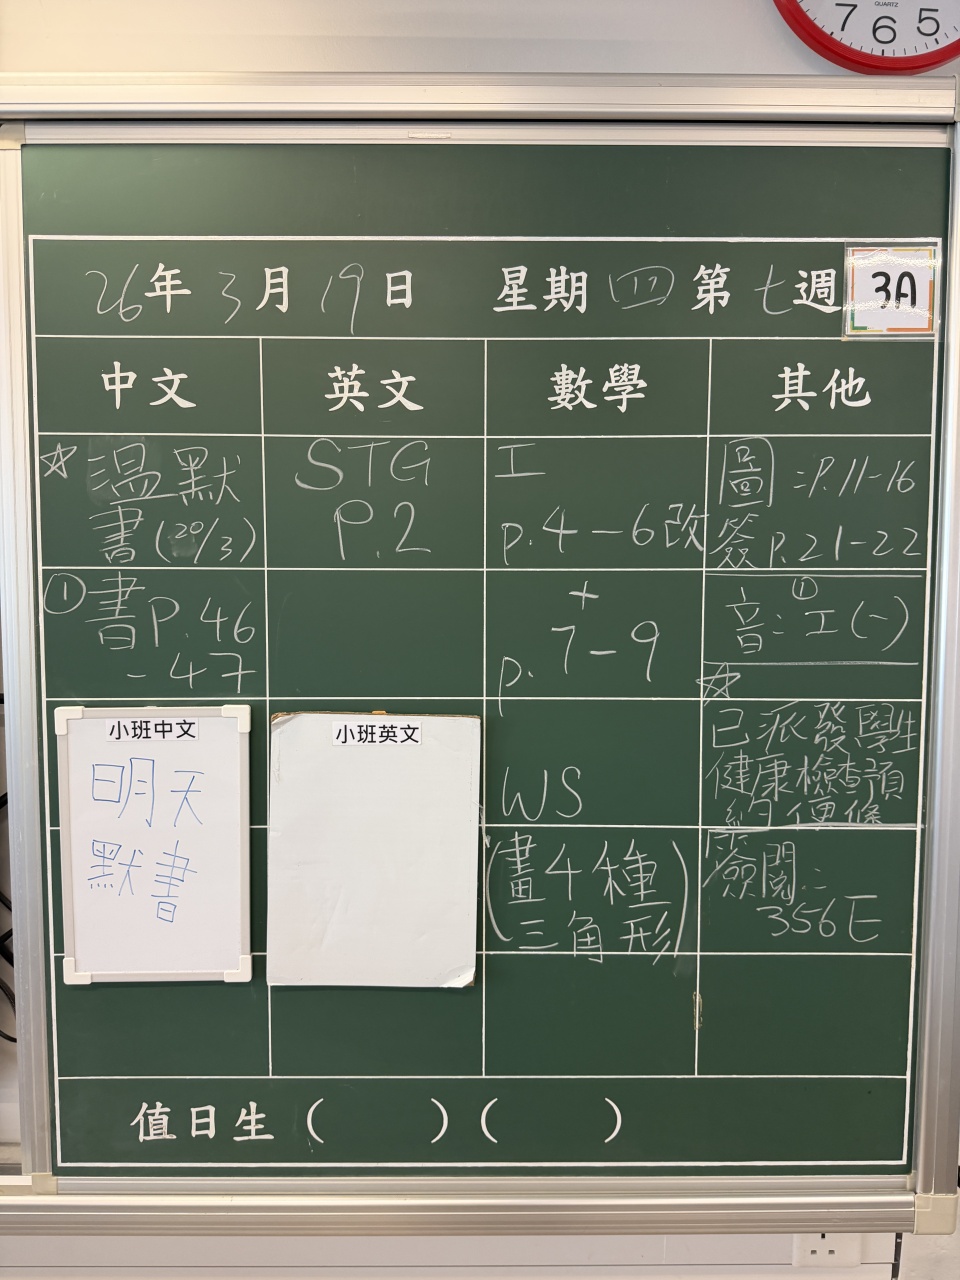 QUARTZ
7 6 5
26年3月19日 星期四 第七週 3A
中文
☆溫默
書(20/3)
①書P.46
-47
小班中文
明天
默書
英文
STG
P.2
小班英文
數學
工
p.4-6改
+
p.7-9
WS
(畫4種
三角形)
其他
圖:P.11-16
簽P.21-22
①
音:工(一)
☆
已派發學生
健康檢查預
約便條
需檢閱:
356E
值日生( )( )